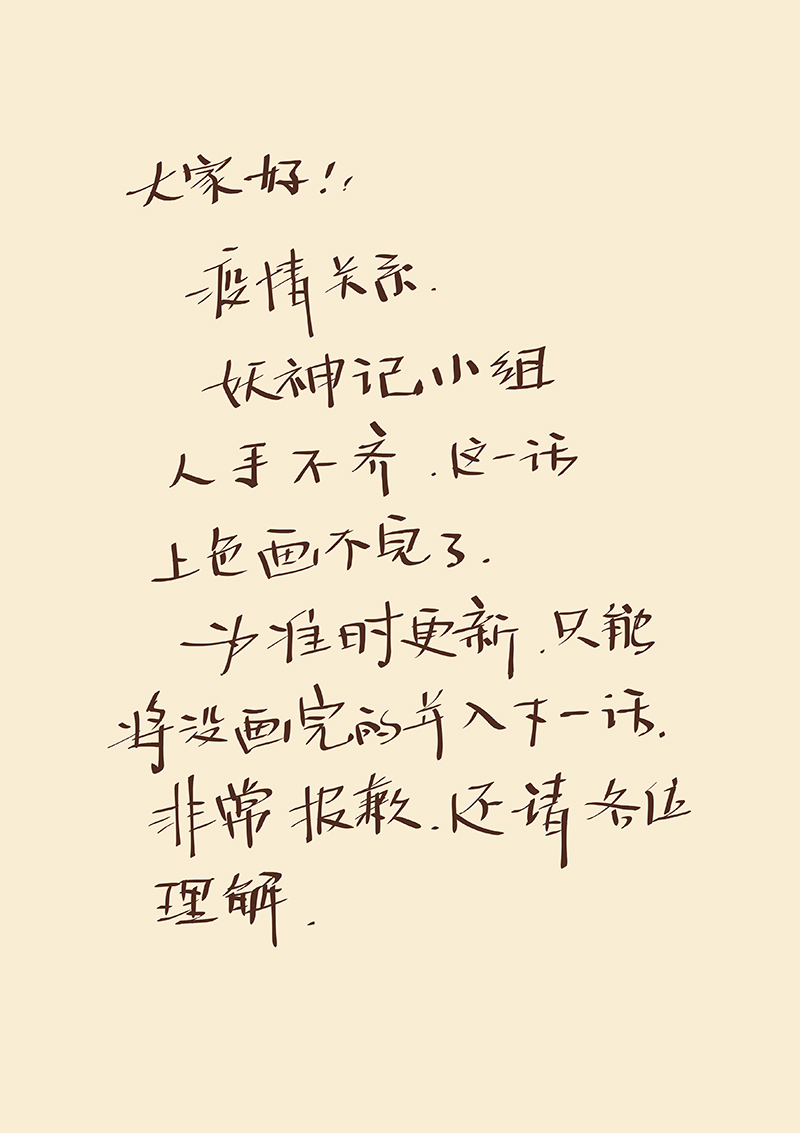 大家好!!
疫情关系.
妖神记小组
人手不齐.这一话
上色画不完了.
为准时更新.只能
将没画完的并入下一话.
非常报歉.还请各位
理解.